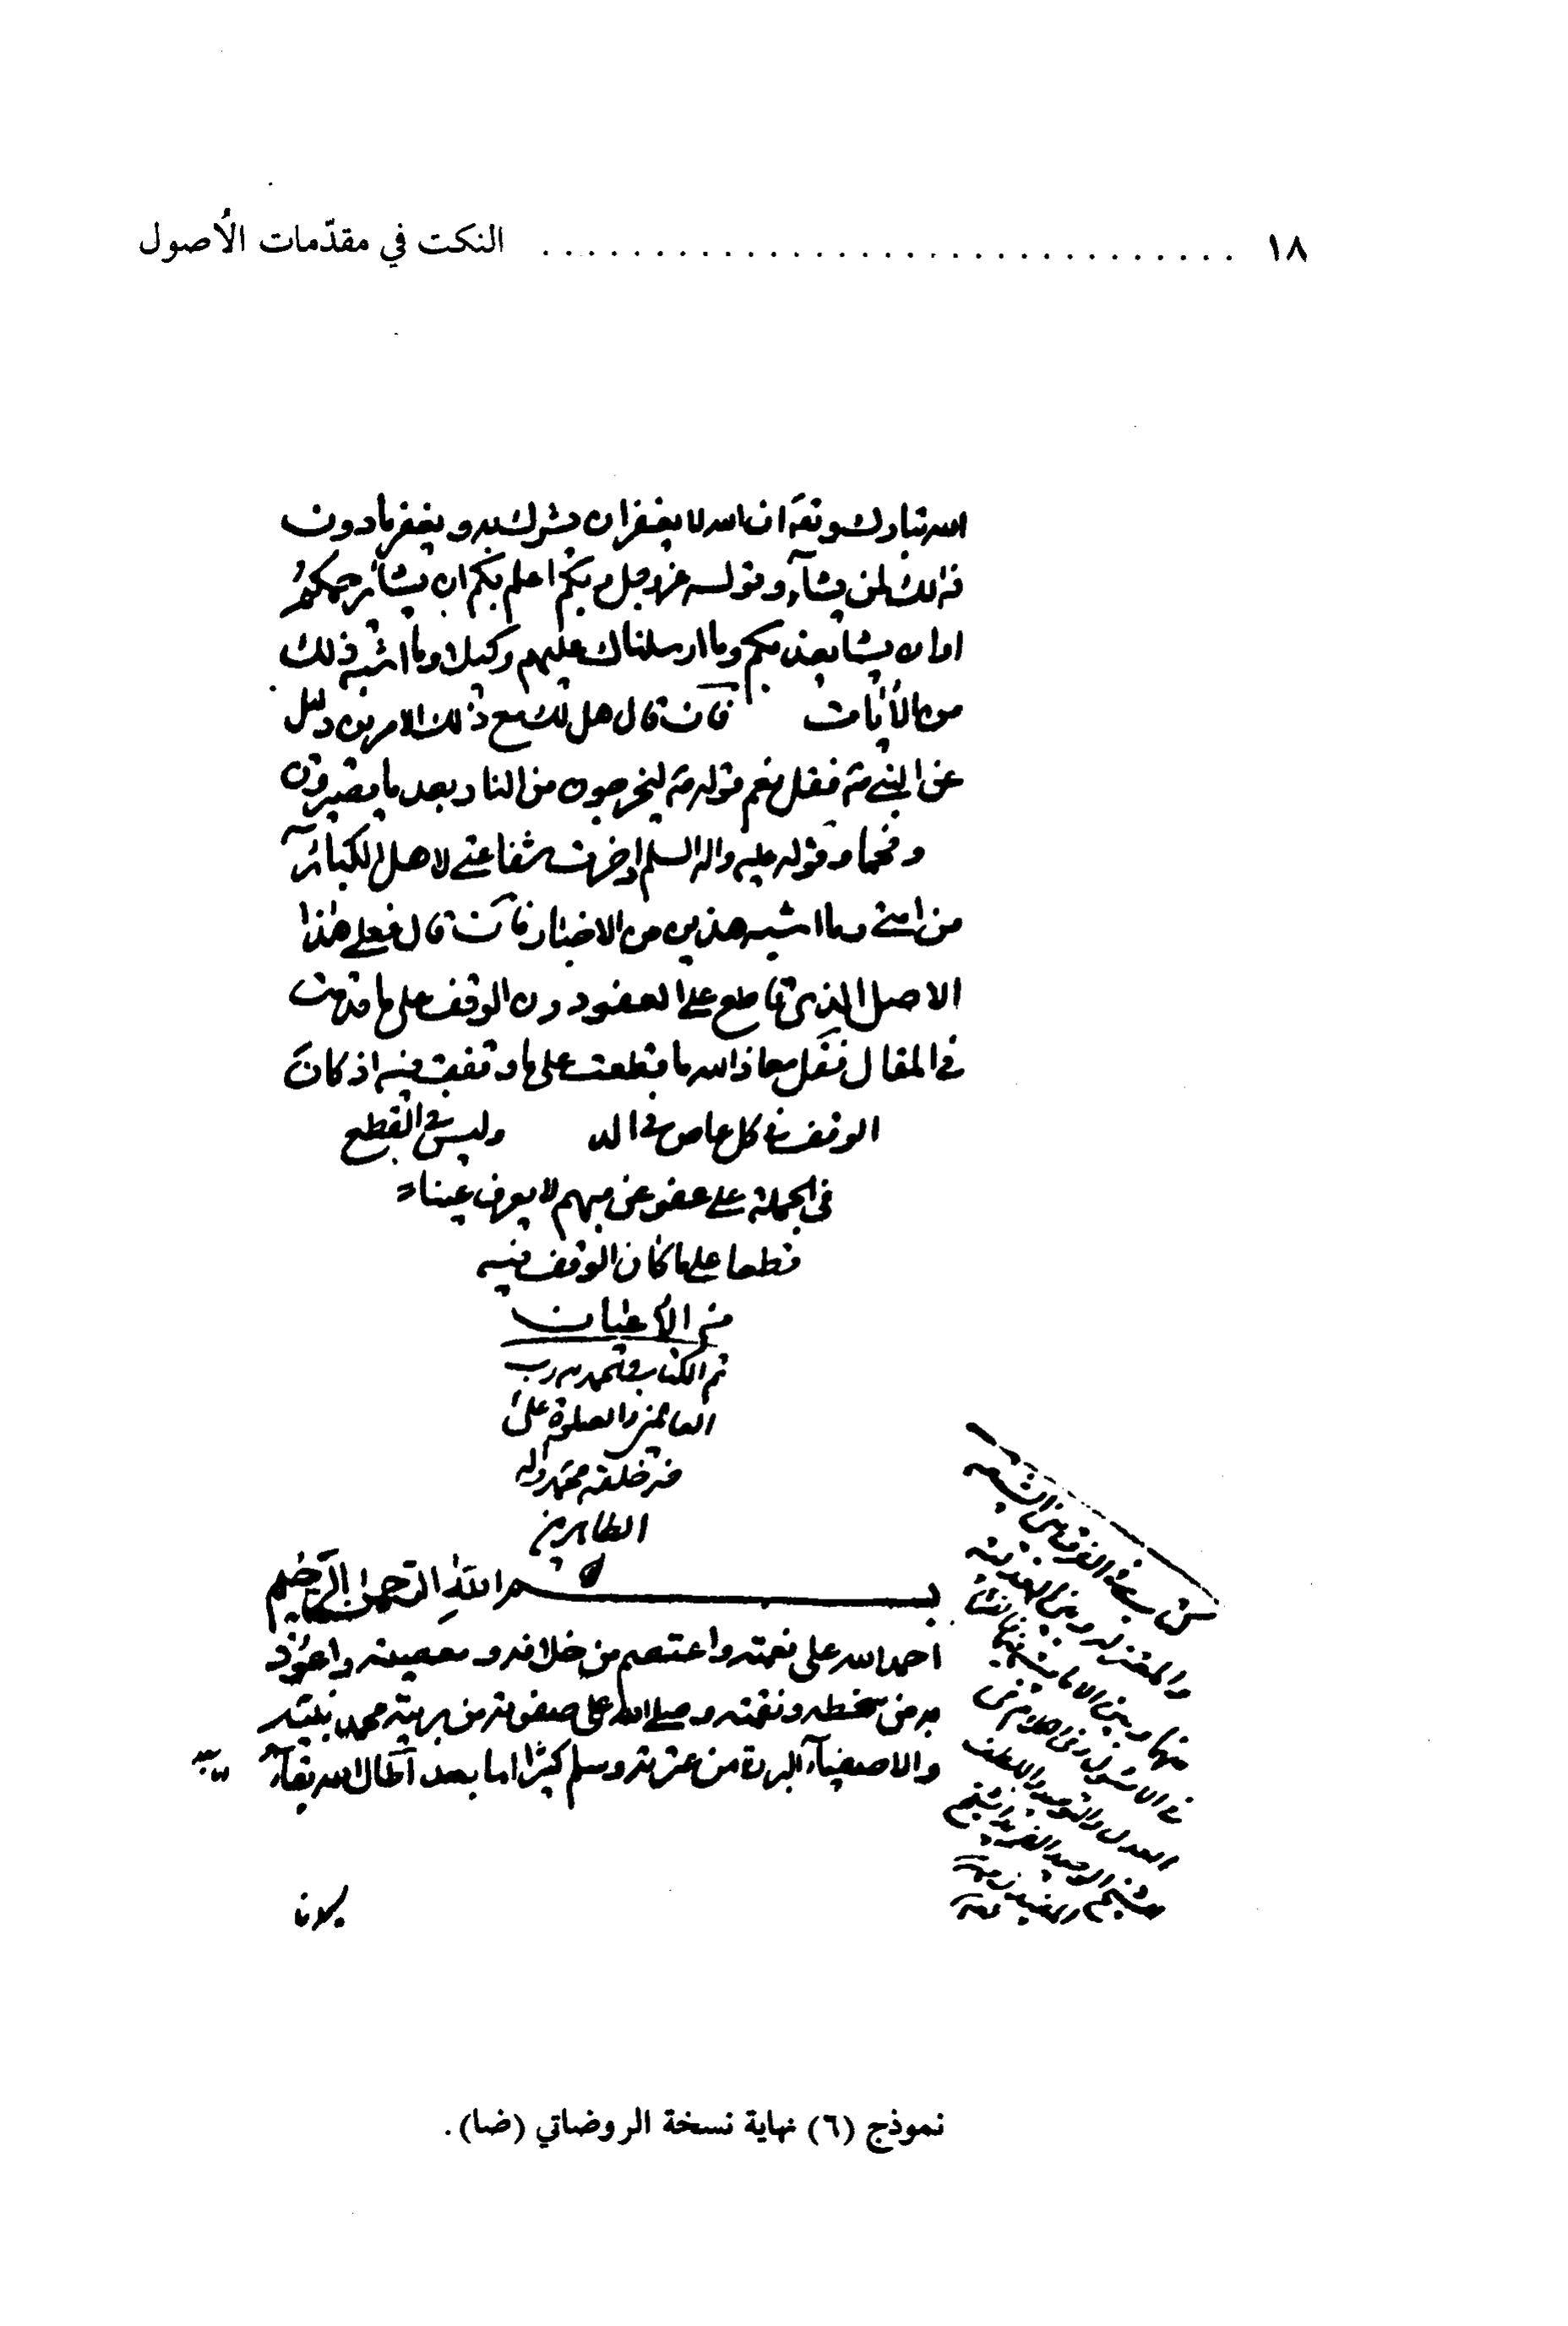 ١٨ .............................. النكت في مقدّمات الأصول
الله تبارك وتعۤ ان الله لا يغفر ان يشرك به ويغفر ما دون
ذالك لمن يشآء وقوله عز وجل ربكم اعلم بكم ان يشا يرحمكم
او ان يشا يعذبكم وما ارسلناك عليهم وكيلا وما اشبه ذلك
من الأيات فان قال هل لك مع ذلك الامرين دليل
عن النبي فقل نعم قوله ليخرجون من النار بعد ما يصيرون
وفحما وقوله عليه واله السلم ادخرت شفاعتي لاهل الكبائر
من امتي وما اشبه هذين من الاخبار فان قال فعلى هذا
الاصل الذي قاطع على العفو دون الوقف على ما قدمت
في المقال فقل معاذ الله ما قطعت على ما وقفت فيه اذ كان
الوقف في كل عاص في الد وليس في القطع
في الجملة على عفو عن مبهم لا يعرف عيناه
قطعا على ما كان الوقف فيه
من الأعيان
تم الكتاب رب
العالمين والصلوة على
خلقه محمد واله
الطاهرين
بسم الله الرحمن الرحيم
احمد الله على نعمته واعتصم من خلافه ومعصيته واعوذ
به من سخطه ونقمته وصلى الله على صفوته من بريته محمد نبيه
والاصفيآء البررة من عترته وسلم كثيرا اما بعد اطال الله بقآء
نموذج (٦) نهاية نسخة الروضاتي (ضا).